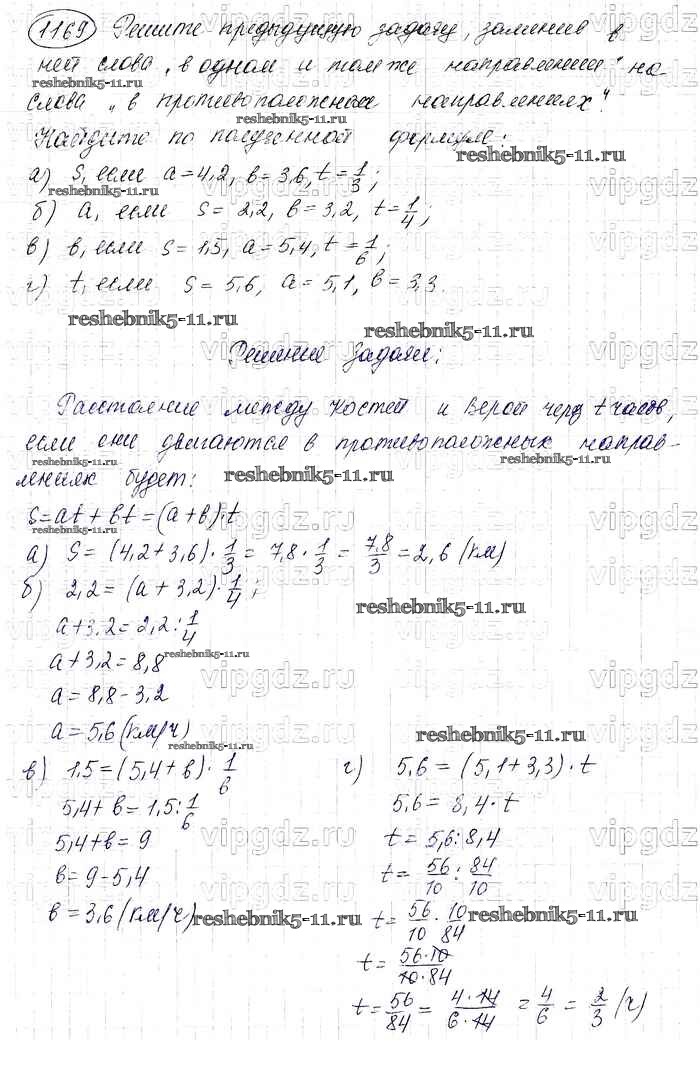 1169 Решите предыдущую задачу, заменив в
ней слова „в одном и том же направлении“ на
reshebnik5-11.ru
слова „в противоположных направлениях“.
reshebnik5-11.ru
Найдите по полученной формуле:
reshebnik5-11.ru
а) S, если a=4,2, b=3,6, t=1/3;
reshebnik5-11.ru
vipgdz.ru
б) a, если S=2,2, b=3,2, t=1/4;
в) b, если S=1,5, a=5,4, t=1/6;
vipgdz.ru
г) t, если S=5,6, a=5,1, b=3,3.
reshebnik5-11.ru
reshebnik5-11.ru
Решение задачи:
vipgdz.ru
Расстояние между Костей и Верой через t часов,
если они двигаются в противоположных направ-
reshebnik5-11.ru
reshebnik5-11.ru
лениях будет:
reshebnik5-11.ru
S=at+bt=(a+b)·t
reshebnik5-11.ru
vipgdz.ru
а) S=(4,2+3,6)·1/3=7,8·1/3=7,8/3=2,6 (км)
б) 2,2=(a+3,2)·1/4;
reshebnik5-11.ru
a+3,2=2,2:1/4
a+3,2=8,8
reshebnik5-11.ru
vipgdz.ru
a=8,8-3,2
a=5,6 (км/ч)
reshebnik5-11.ru
reshebnik5-11.ru
в) 1,5=(5,4+b)·1/6
5,4+b=1,5:1/6
5,4+b=9
b=9-5,4
b=3,6 (км/ч)
reshebnik5-11.ru
г) 5,6=(5,1+3,3)·t
5,6=8,4·t
t=5,6:8,4
t=56/10:84/10
t=56/10·10/84
reshebnik5-11.ru
t=56·10/10·84
t=56/84=4·14/6·14=4/6=2/3 (ч)
vipgdz.ru